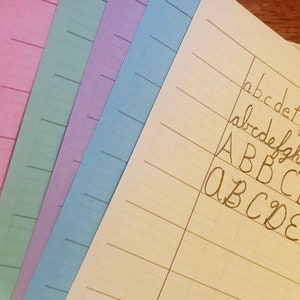 abcdef
abcdefgh
ABBCD
ABCDE